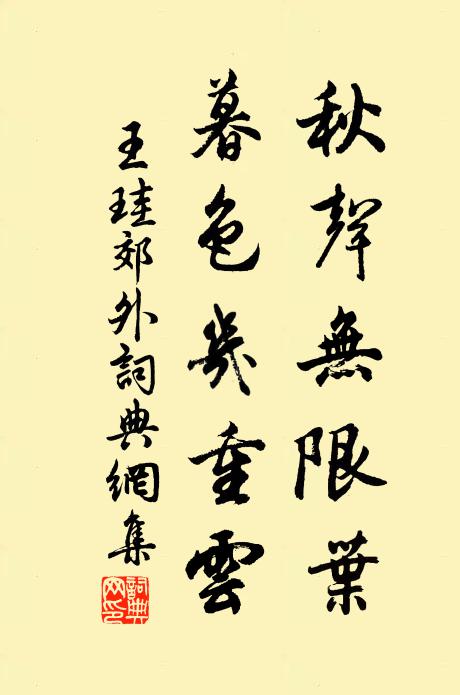 秋聲無限葉
暮色幾重雲
王珪郊外詞典網集
詞典網印